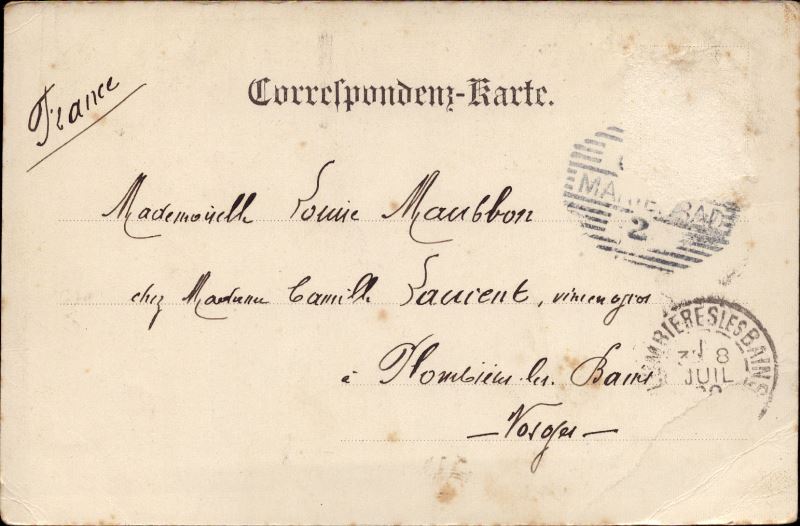 France
Correspondenz-Karte.
Mademoiselle Louise Maubbon
chez Madame Camille Laurent, vins en gros
à Plombières les Bains
— Vosges —
MARIENBAD
2
MBIERES LES BAINS
8
JUIL